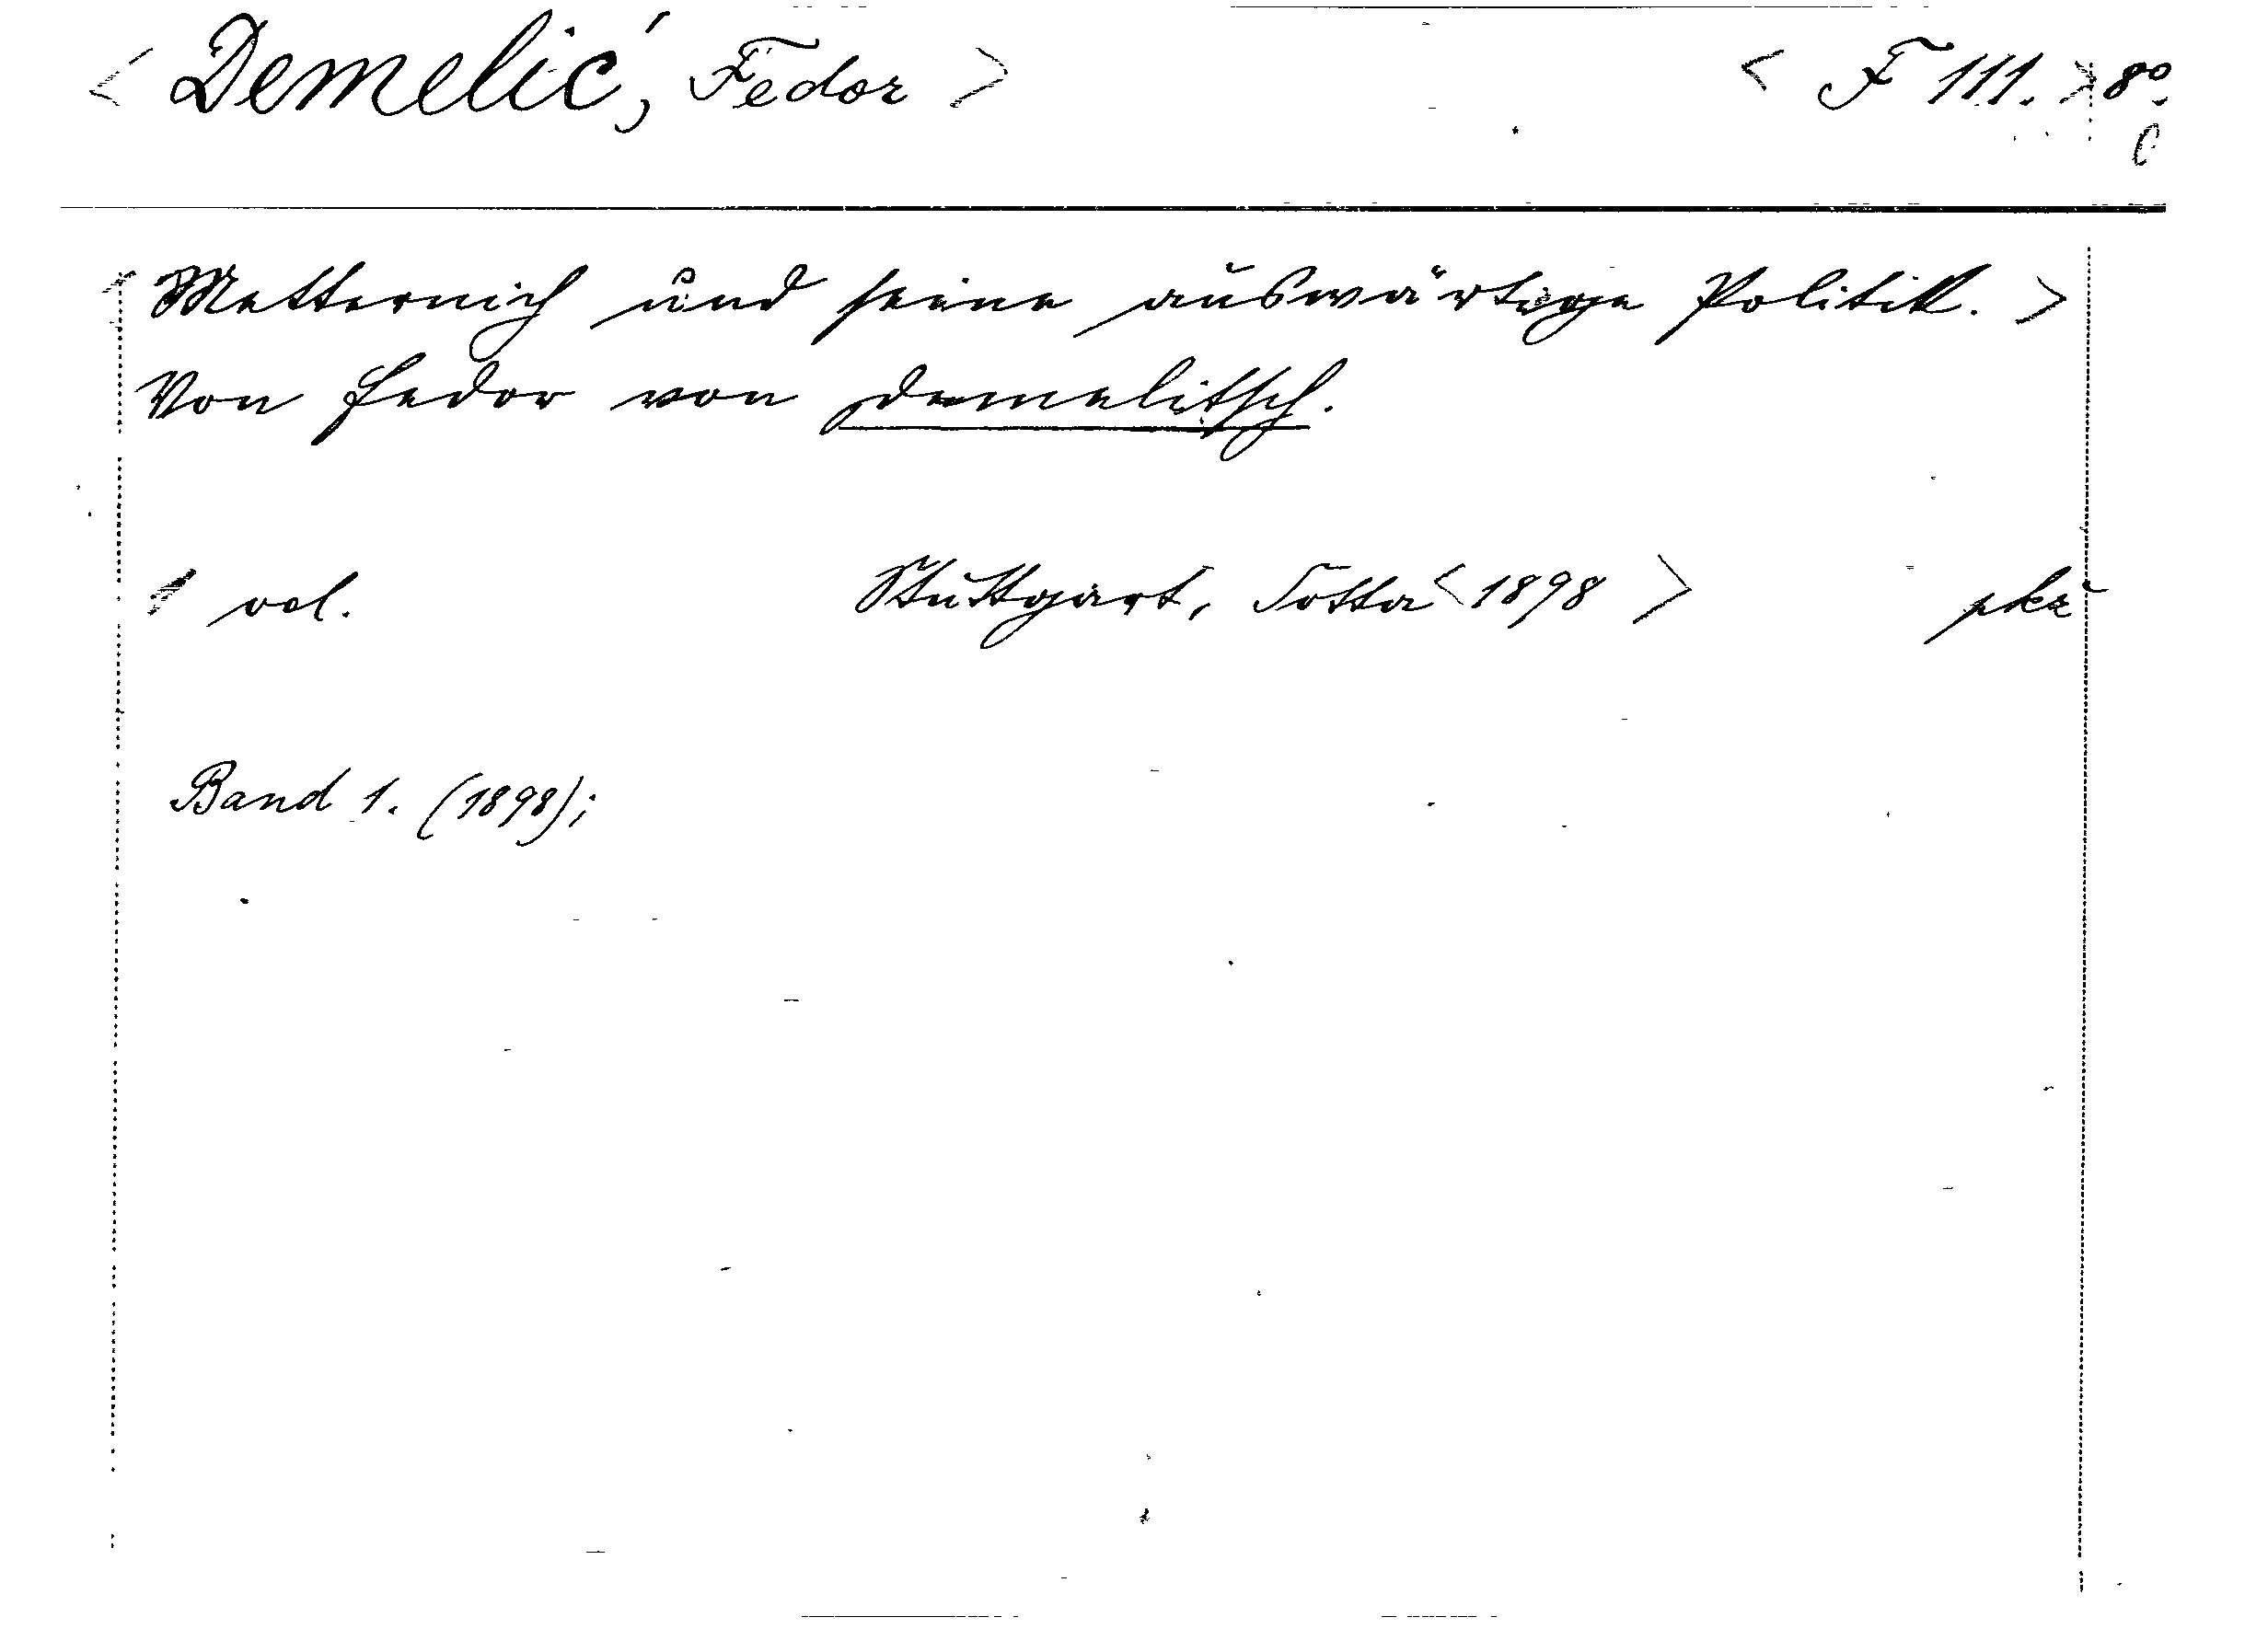 < Demelić, Fedor > < F 111. > 8º.
< Metternich und seine auswärtige Politik. >
Von Fedor von Demelitsch.
1 vol. Stuttgart, Cotta < 1898 >
Band 1. (1898);